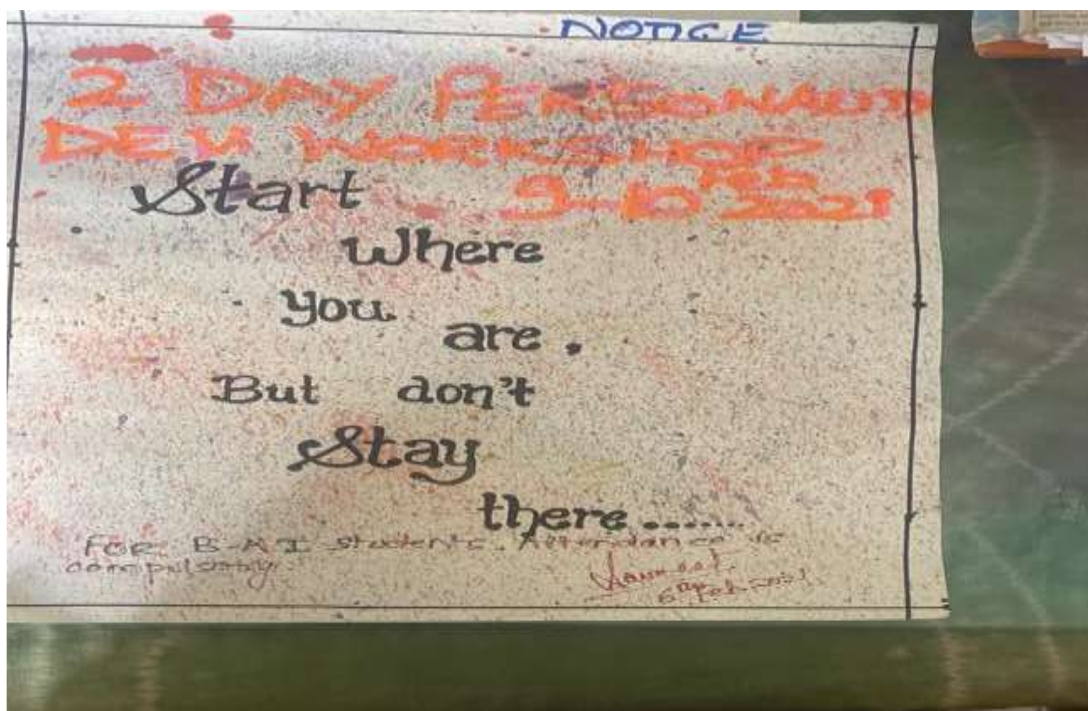 NOTICE
2 DAY PERSONALITY
DEV WORKSHOP
Start 9-10 Feb 2021
where
you
are.
But don't
Stay
there.......
FOR B-A I students. Attendance is
compulsory.
6th Feb 2021